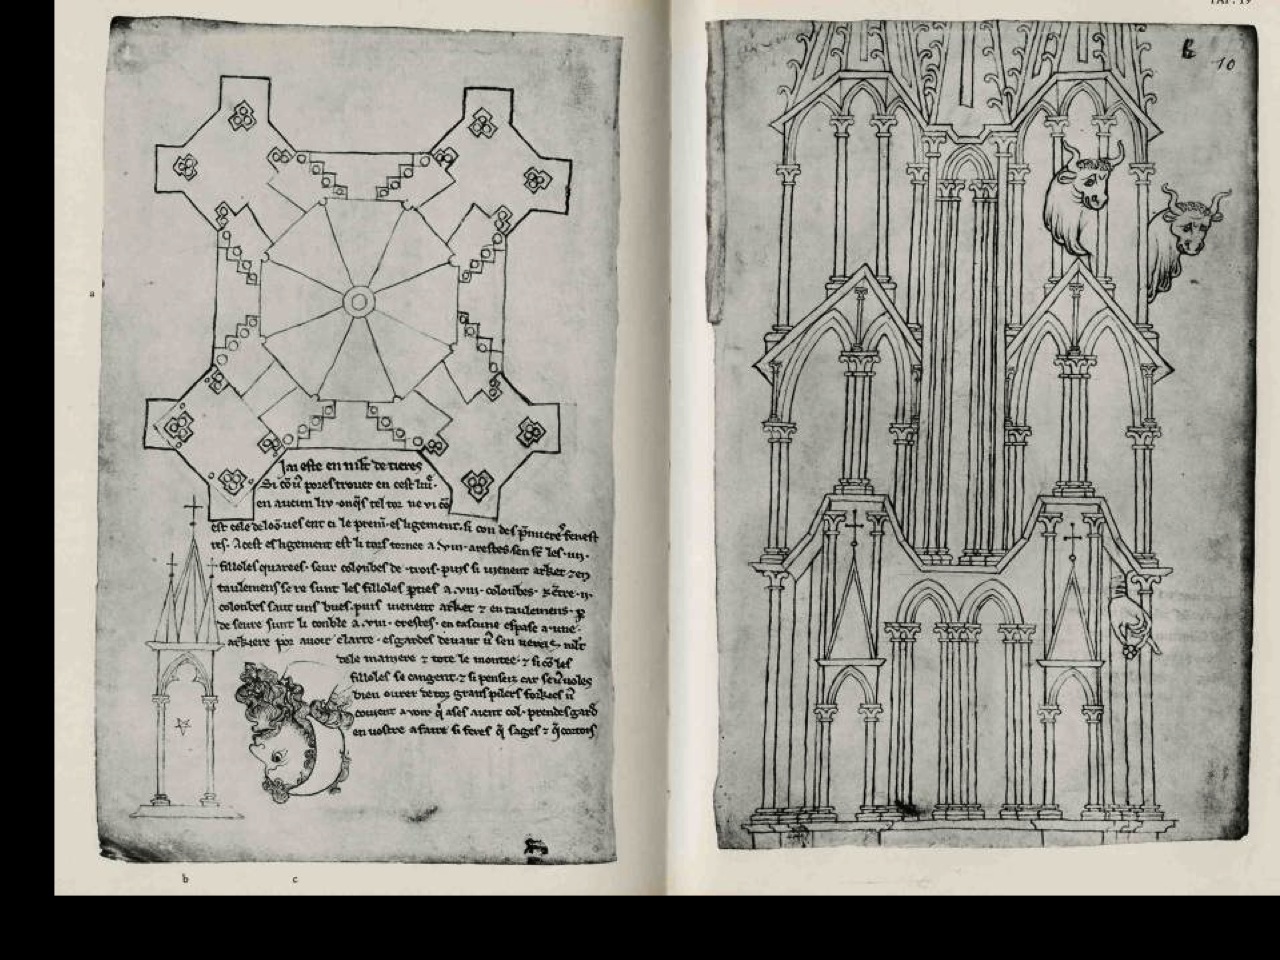 a
J'ai este en mlt de tieres
si cō ū pores trouer en cest liu'.
en aucun liu onq̄s tel tor ne vi cō
est cele de loō ues ent ci le prem̄. esligement. si con des p̄miere fenest
res. A cest esligement est li tors tornee a .viii. arestes
filloles quarees. seur colonbes de .trois. puis si uienent arket z en
taulemens se re sunt les filloles p̄ties a .viii. colonbes. z ētre .ii.
colonbes saut uns bues. puis uienent arket z entaulemens. p̄
de seure sunt li conble a .viii. crestes. en cascune espase a une
arkiere por auoir clarte. esgardes deuant ū s'en ueres mlt
de le maniere z tote le montee. z si cō les
filloles se cangent. z si penseiz car se ū uoles
bien ourer de toz grans pilers forkies ū
couient auoir q̄ ases aient col. prendes gard
en uostre afaire si feres q̄ sages z q̄ cortois
b
c
TAF. 19
b
10